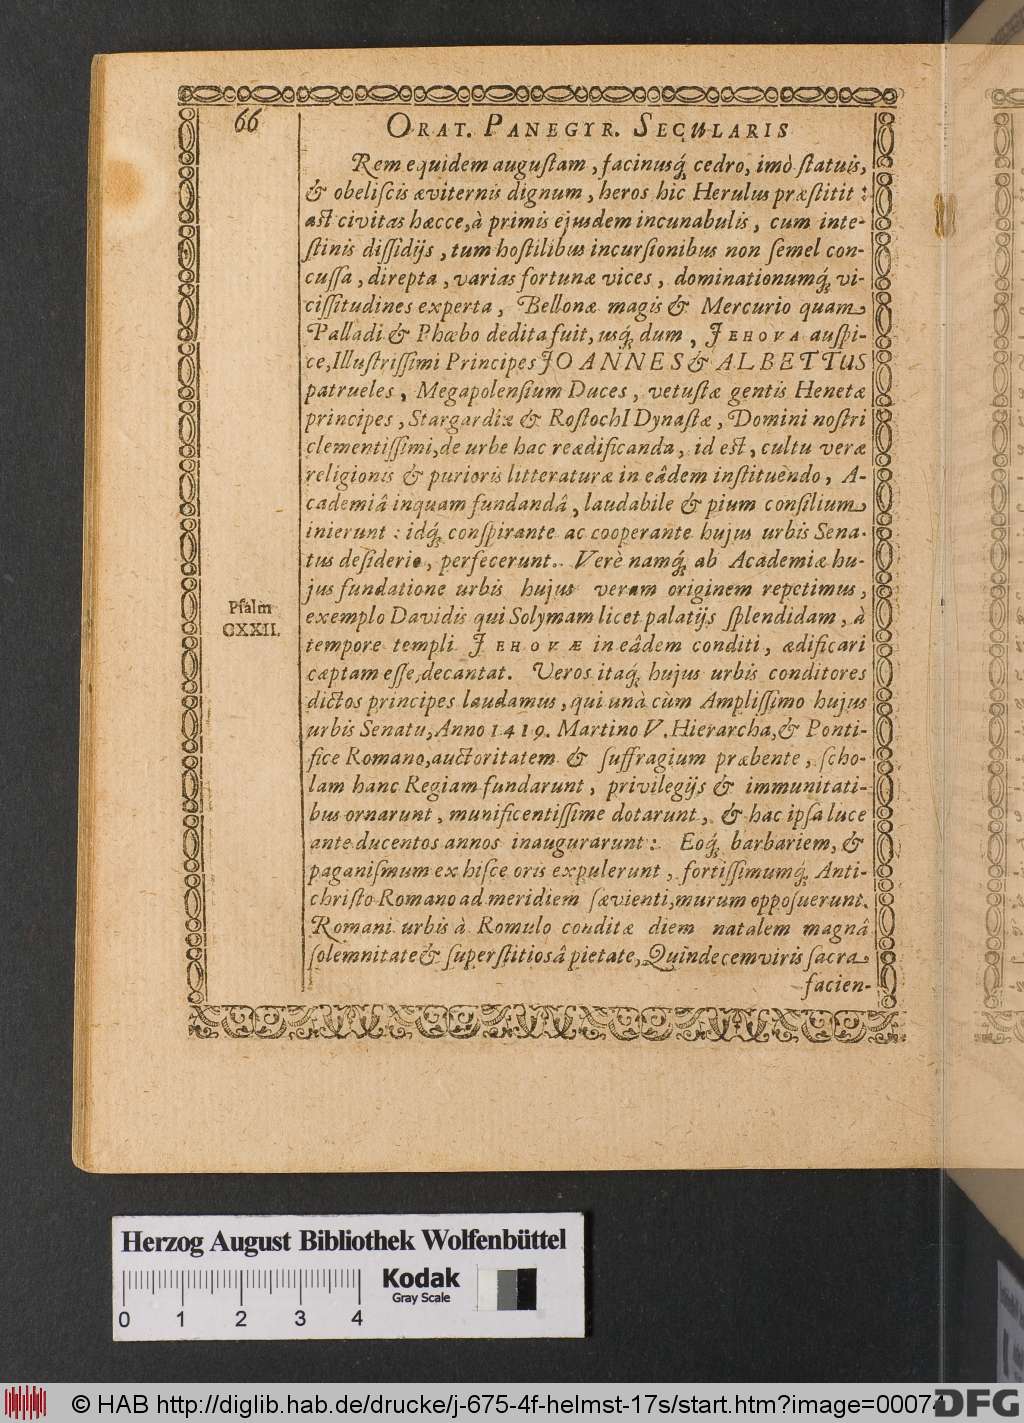 66
ORAT. PANEGYR. SECULARIS
Rem equidem augustam, facinusq́ꝫ cedro, imò statuis,
& obeliscis æviternis dignum, heros hic Herulus præstitit :
ast civitas hæcce, à primis ejusdem incunabulis, cum inte-
stinis dissidijs, tum hostilibus incursionibus non semel con-
cussa, direpta, varias fortunæ vices, dominationumq́ꝫ vi-
cissitudines experta, Bellonæ magis & Mercurio quam
Palladi & Phœbo dedita fuit, usq́ꝫ dum, JEHOVA auspi-
ce, Illustrissimi Principes JOANNES & ALBETTUS
patrueles, Megapolensium Duces, vetustæ gentis Henetæ
principes, Stargardiæ & RostochI Dynastæ, Domini nostri
clementissimi, de urbe hac reædificanda, id est, cultu veræ
religionis & purioris litteraturæ in eâdem instituendo, A-
cademiâ inquam fundandâ, laudabile & pium consilium
inierunt : idq́ꝫ conspirante ac cooperante hujus urbis Sena-
tus desiderio, perfecerunt. Verè namq́ꝫ ab Academiæ hu-
jus fundatione urbis hujus veram originem repetimus,
Psalm
CXXII.
exemplo Davidis qui Solymam licet palatijs splendidam, à
tempore templi JEHOVÆ in eâdem conditi, ædificari
cæptam esse, decantat. Veros itaq́ꝫ hujus urbis conditores
dictos principes laudamus, qui unà cùm Amplissimo hujus
urbis Senatu, Anno 1419. Martino V. Hierarcha, & Ponti-
fice Romano, auctoritatem & suffragium præbente, scho-
lam hanc Regiam fundarunt, privilegijs & immunitati-
bus ornarunt, munificentissime dotarunt, & hac ipsa luce
ante ducentos annos inaugurarunt : Eoq́ꝫ barbariem, &
paganismum ex hisce oris expulerunt, fortissimumq́ꝫ Anti-
christo Romano ad meridiem sævienti, murum opposuerunt.
Romani urbis à Romulo conditæ diem natalem magnâ
solemnitate & superstitiosâ pietate, Quindecemviris sacra
facien-
Herzog August Bibliothek Wolfenbüttel
Kodak
Gray Scale
0 1 2 3 4
© HAB http://diglib.hab.de/drucke/j-675-4f-helmst-17s/start.htm?image=00074
DFG